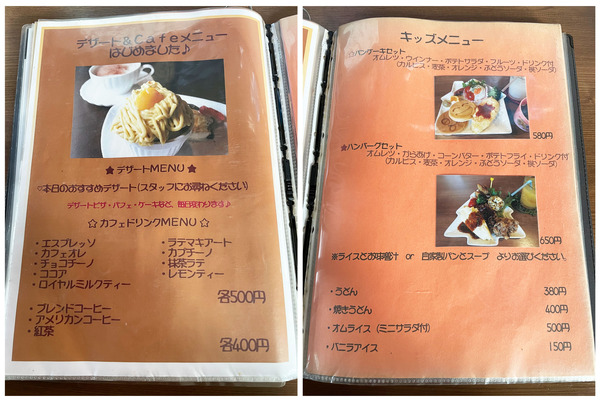 デザート&Cafeメニュー
はじめました♪
★デザートMENU★
○本日のおすすめデザート(スタッフにお尋ねください)
デザートピザ・パフェ・ケーキなど、毎日変わります♪
☆カフェドリンクMENU☆
・エスプレッソ
・カフェオレ
・チョコチーノ
・ココア
・ロイヤルミルクティー
・ラテマキアート
・カプチーノ
・抹茶ラテ
・レモンティー
各500円
・ブレンドコーヒー
・アメリカンコーヒー
・紅茶
各400円
キッズメニュー
☆パンケーキセット
オムレツ・ウインナー・ポテトサラダ・フルーツ・ドリンク付
(カルピス・麦茶・オレンジ・ぶどうソーダ・桃ソーダ)
580円
★ハンバーグセット
オムレツ・からあげ・コーンバター・ポテトフライ・ドリンク付
(カルピス・麦茶・オレンジ・ぶどうソーダ・桃ソーダ)
650円
※ライスとお味噌汁 or 自家製パンとスープ よりお選びください。
・うどん 380円
・焼きうどん 400円
・オムライス(ミニサラダ付) 500円
・バニラアイス 150円